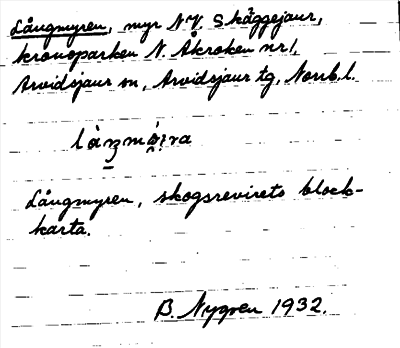 Långmyren, myr NV. Skäggejaur,
kronoparken N. Åkroken nr 1,
Arvidsjaur sn, Arvidsjaur tg, Norrb. l.
Långmyren, skogsrevirets block-
karta.
B. Nygren 1932.